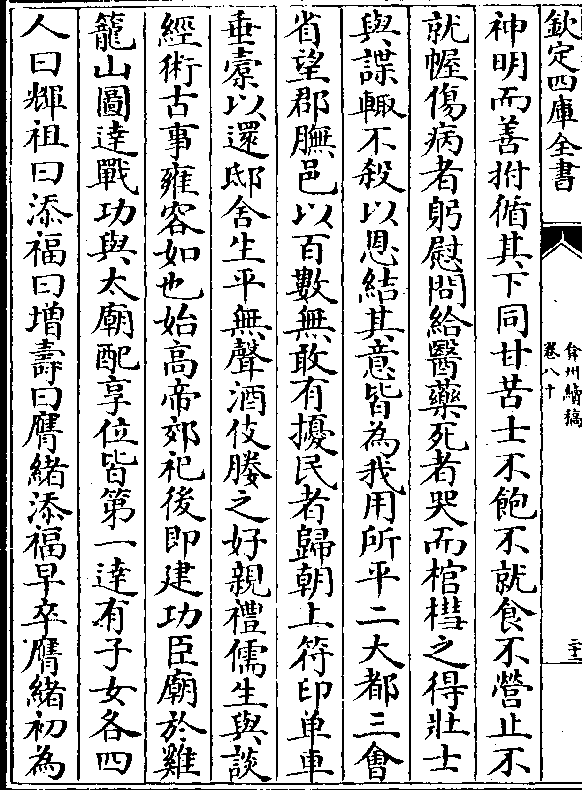 欽定四庫全書
弇州續稿
卷八十
二十二
神明而善拊循其下同甘苦士不飽不就食不營止不
就幄傷病者躬慰問給醫藥死者哭而棺槥之得壯士
與諜輒不殺以恩結其意皆為我用所平二大都三會
省望郡膴邑以百數無敢有擾民者歸朝上符印单車
垂橐以還邸舍生平無聲酒伎媵之好親禮儒生與談
經術古事雍容如也始高帝郊祀後即建功臣廟於雞
籠山圖達戰功與太廟配享位皆第一達有子女各四
人曰輝祖曰添福曰增壽曰膺緒添福早卒膺緒初為